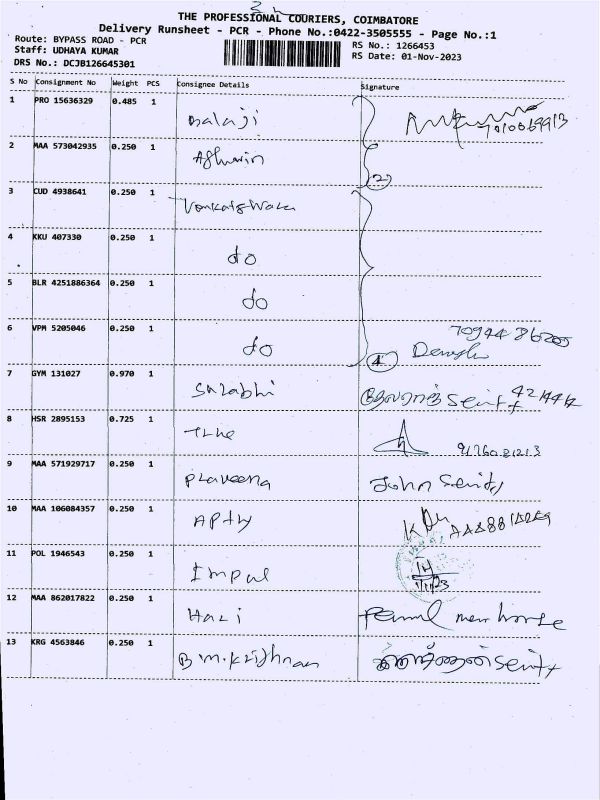 THE PROFESSIONAL COURIERS, COIMBATORE
Delivery Runsheet - PCR - Phone No.:0422-3505555 - Page No.:1
Route: BYPASS ROAD - PCR
Staff: UDHAYA KUMAR
DRS No.: DCJB126645301
RS No.: 1266453
RS Date: 01-Nov-2023
S No Consignment No Weight PCS Consignee Details Signature
1 PRO 15636329 0.485 1 Balaji
2 MAA 573042935 0.250 1 Ashwin 2
3 CUD 4938641 0.250 1 Venkateswara
4 KKU 407330 0.250 1 do
5 BLR 4251886364 0.250 1 do
6 VPM 5205046 0.250 1 do 4
7 GYM 131027 0.970 1 Surabhi
8 HSR 2895153 0.725 1
9 MAA 571929717 0.250 1 Praveena John Seuity
10 MAA 106084357 0.250 1
11 POL 1946543 0.250 1 Impal
12 MAA 862017822 0.250 1 Hari
13 KRG 4563846 0.250 1 B.M.Krishnan